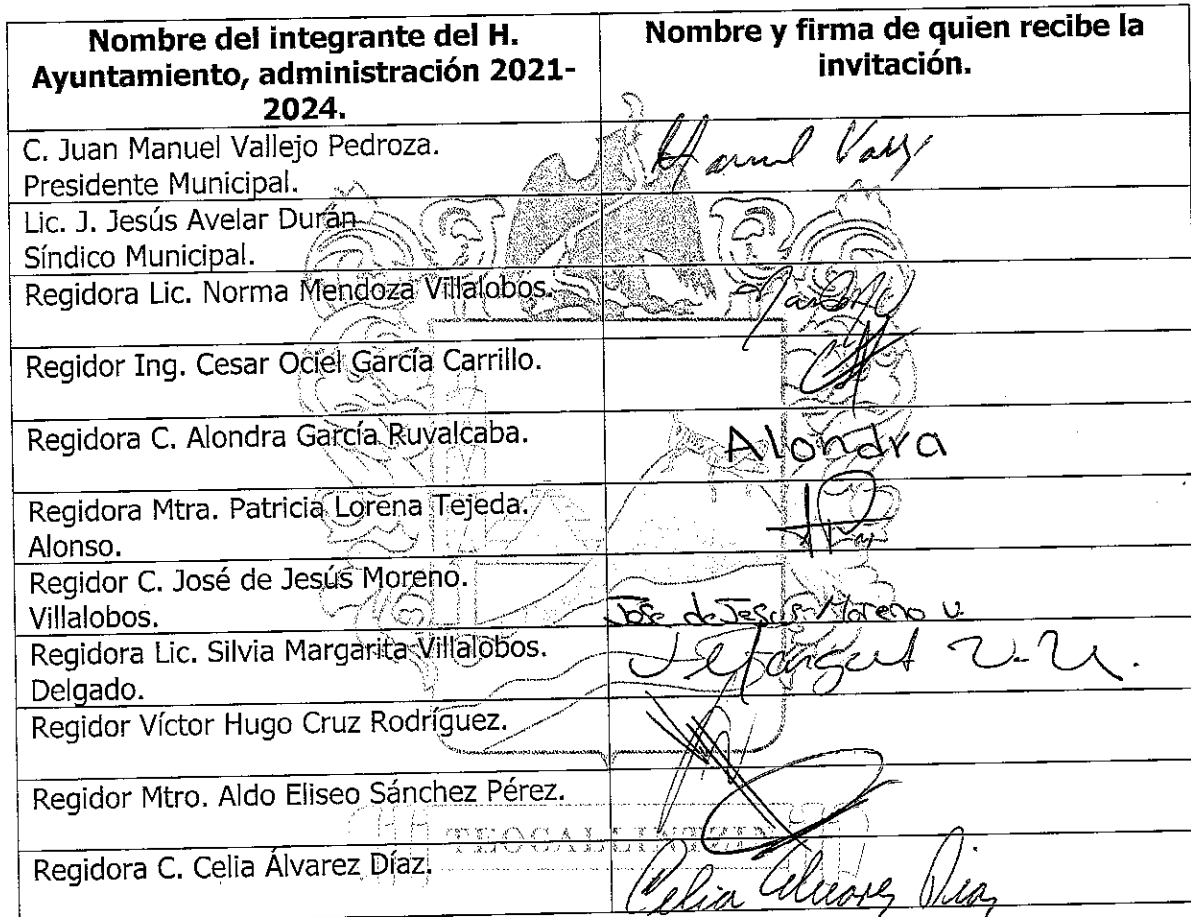 Nombre del integrante del H.
Ayuntamiento, administración 2021-
2024.
Nombre y firma de quien recibe la
invitación.
C. Juan Manuel Vallejo Pedroza.
Presidente Municipal.
Lic. J. Jesús Avelar Durán
Síndico Municipal.
Regidora Lic. Norma Mendoza Villalobos.
Regidor Ing. Cesar Ociel García Carrillo.
Regidora C. Alondra García Ruvalcaba.
Alondra
Regidora Mtra. Patricia Lorena Tejeda.
Alonso.
Regidor C. José de Jesús Moreno.
Villalobos.
José de Jesus Moreno V.
Regidora Lic. Silvia Margarita Villalobos.
Delgado.
Regidor Víctor Hugo Cruz Rodríguez.
Regidor Mtro. Aldo Eliseo Sánchez Pérez.
TEOCALLINTZIN
Regidora C. Celia Álvarez Díaz.
Celia Alvarez Diaz